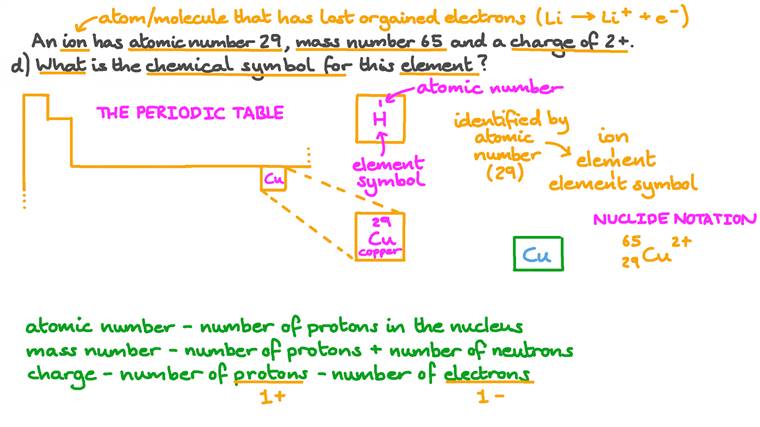 atom/molecule that has lost or gained electrons (Li → Li⁺ + e⁻)
An ion has atomic number 29, mass number 65 and a charge of 2+.
d) What is the chemical symbol for this element?
THE PERIODIC TABLE
atomic number
1
H
element
symbol
identified by
atomic
number
(29)
ion
element
element symbol
Cu
29
Cu
copper
Cu
NUCLIDE NOTATION
65
29
Cu
2+
atomic number - number of protons in the nucleus
mass number - number of protons + number of neutrons
charge - number of protons - number of electrons
1+ 1-